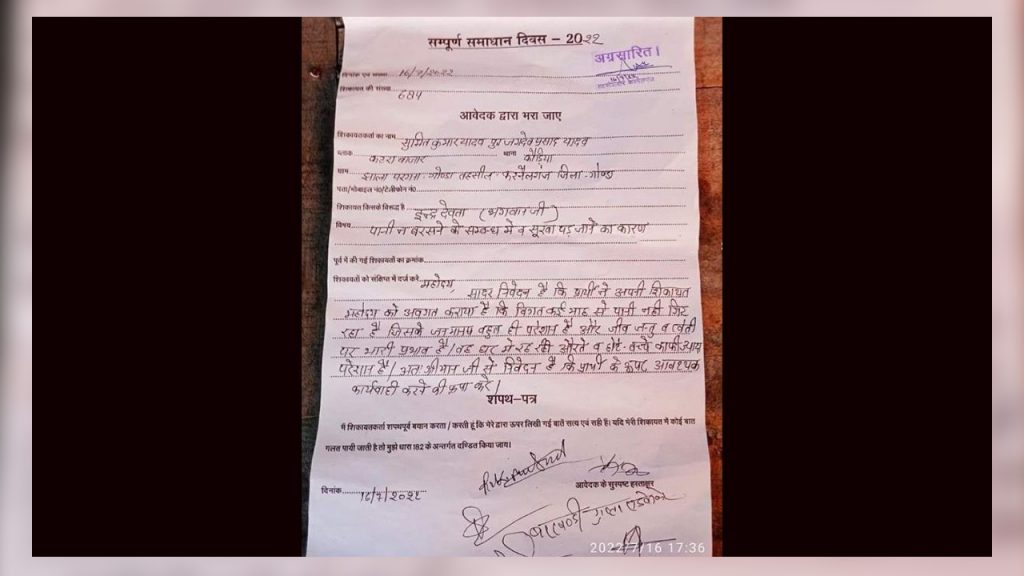 सम्पूर्ण समाधान दिवस – 2022
अग्रसारित।
दिनांक एवं संख्या 16/7/2022
शिकायत की संख्या 684
आवेदक द्वारा भरा जाए
शिकायतकर्ता का नाम सुमित कुमार यादव पुत्र जगदेव प्रसाद यादव
ब्लाक कटरा बाजार थाना कौड़िया
ग्राम झाला परगना गोण्डा तहसील करनैलगंज जिला गोण्डा
पता/मोबाइल नं0/टेलीफोन नं0
शिकायत किसके विरुद्ध है इन्द्र देवता (भगवान जी)
विषय पानी न बरसने के सम्बन्ध मे व सूखा पड़ जाने का कारण
पूर्व में की गई शिकायतों का क्रमांक
शिकायतों को संक्षिप्त में दर्ज करे महोदय
सादर निवेदन है कि प्रार्थी ने अपनी शिकायत
महोदय को अवगत कराया है कि विगत कई माह से पानी नही गिर
रहा है जिसके जनमानस बहुत ही परेशान है और जीव जन्तु व खेती
पर भारी प्रभाव है। घर मे रह रही औरते व छोटे बच्चे काफी
परेशान है। अतः श्रीमान जी से निवेदन है कि प्रार्थी के ऊपर आवश्यक
कार्यवाही करने की कृपा करे।
शपथ–पत्र
मैं शिकायतकर्ता शपथपूर्व बयान करता / करती हूं कि मेरे द्वारा ऊपर लिखी गई बातें सत्य एवं सही हैं। यदि मेरी शिकायत में कोई बात
गलत पायी जाती है तो मुझे धारा 182 के अन्तर्गत दण्डित किया जाय।
दिनांक 16/7/2022
आवेदक के सुस्पष्ट हस्ताक्षर
2022/7/16 17:36